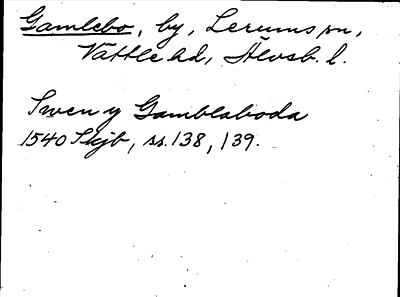 Gamlebo, by, Lerums sn,
Vättle hd, Älvsb. l.
Swen y Gamblaboda
1540 Skjb, ss. 138, 139.